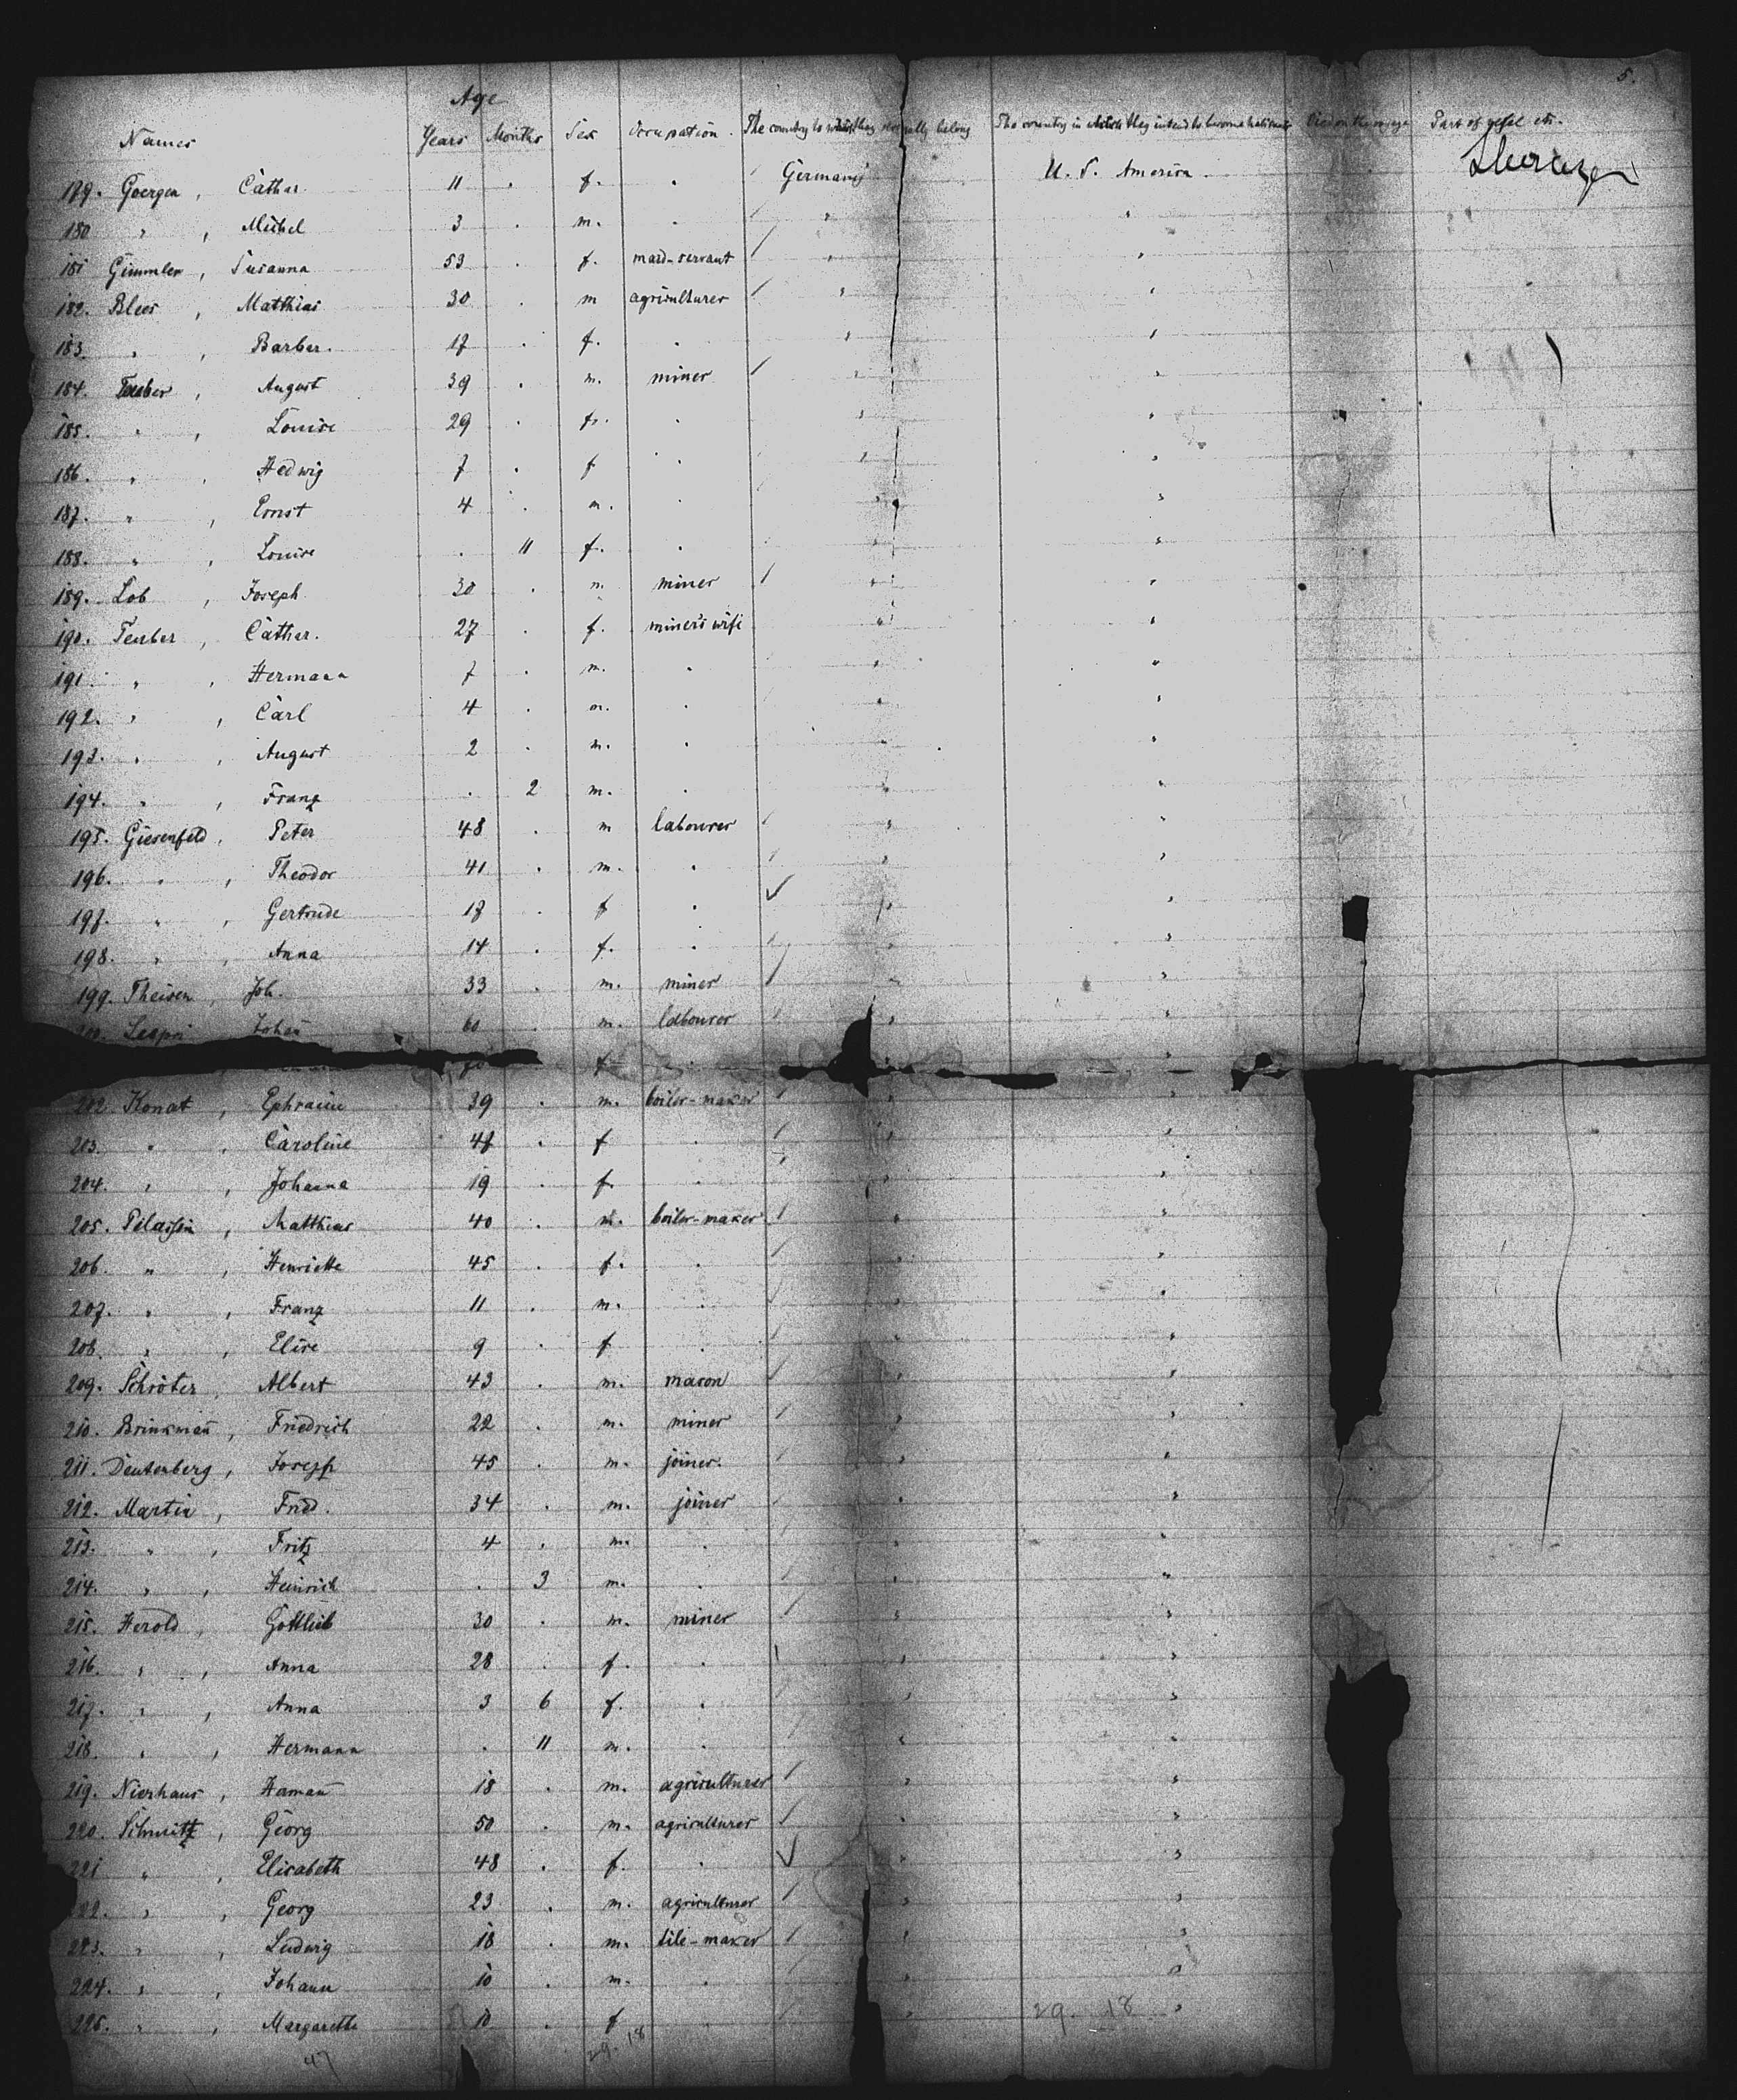 5.
Age
Names Years Months Sex Occupation. The country to which they severally belong The country in which they intend to become habitants Died on the voyage Part of vessel etc.
179. Goergen, Cathar. 11 . f. . Germany U. S. America. Steerage
180 " , Michel 3 . m. . " "
181 Gimmler, Susanna 53 . f. maid-servant " "
182. Blees, Matthias 30 . m agriculturer " "
183. " , Barbar. 17 . f. . " "
184. Teuber, August 39 . m. miner " "
185. " , Louise 29 . f. . " "
186. " , Hedwig 7 . f . " "
187. " , Ernst 4 . m. . " "
188. " , Louise . 11 f. . " "
189. Lob, Joseph 30 . m. miner " "
190. Teuber, Cathar. 27 . f. miner's wife " "
191. " , Hermann 7 . m. . " "
192. " , Carl 4 . m. . " "
193. " , August 2 . m. . " "
194. " , Franz . 2 m. . " "
195. Giesenfeld, Peter 48 . m labourer " "
196. " , Theodor 41 . m. . " "
197. " , Gertrude 17 . f . " "
198. " , Anna 14 . f. . " "
199. Theisen, Joh. 33 . m. miner " "
Johan̄ 60 . m. labourer " "
f . " "
202 Konat, Ephraim 39 . m. boiler-maker " "
203. " , Caroline 47 . f . " "
204. " , Johanna 19 . f. . " "
205. , Matthias 40 . m. boiler-maker " "
206. " , Henriette 45 . f. . " "
207. " , Franz 11 . m. . " "
208. " , Elise 9 . f . " "
209. Schröter, Albert 43 . m. mason " "
210. Brinkman̄, Friedrich 22 . m. miner " "
211. Deutenberg, Joseph 45 . m. joiner. " "
212. Martin, Fried. 34 . m. joiner " "
213. " , Fritz 4 . m. . " "
214. " , Heinrich . 3 m. . " "
215. Herold, Gottlieb 30 . m. miner " "
216. " , Anna 28 . f. . " "
217. " , Anna 3 6 f. . " "
218. " , Hermann . 11 m. . " "
219. Nierhaus, Herman̄ 18 . m. agriculturer " "
220. Schmitz, Georg 50 . m. agriculturer " "
221 " , Elisabeth 48 . f. . " "
222. " , Georg 23 . m. agriculturer " "
223. " , Ludwig 18 . m. tile-maker " "
224. " , Johann 10 . m. . " "
225. " , Margarethe 10 . f . " 29. 18 "
47 29. 18